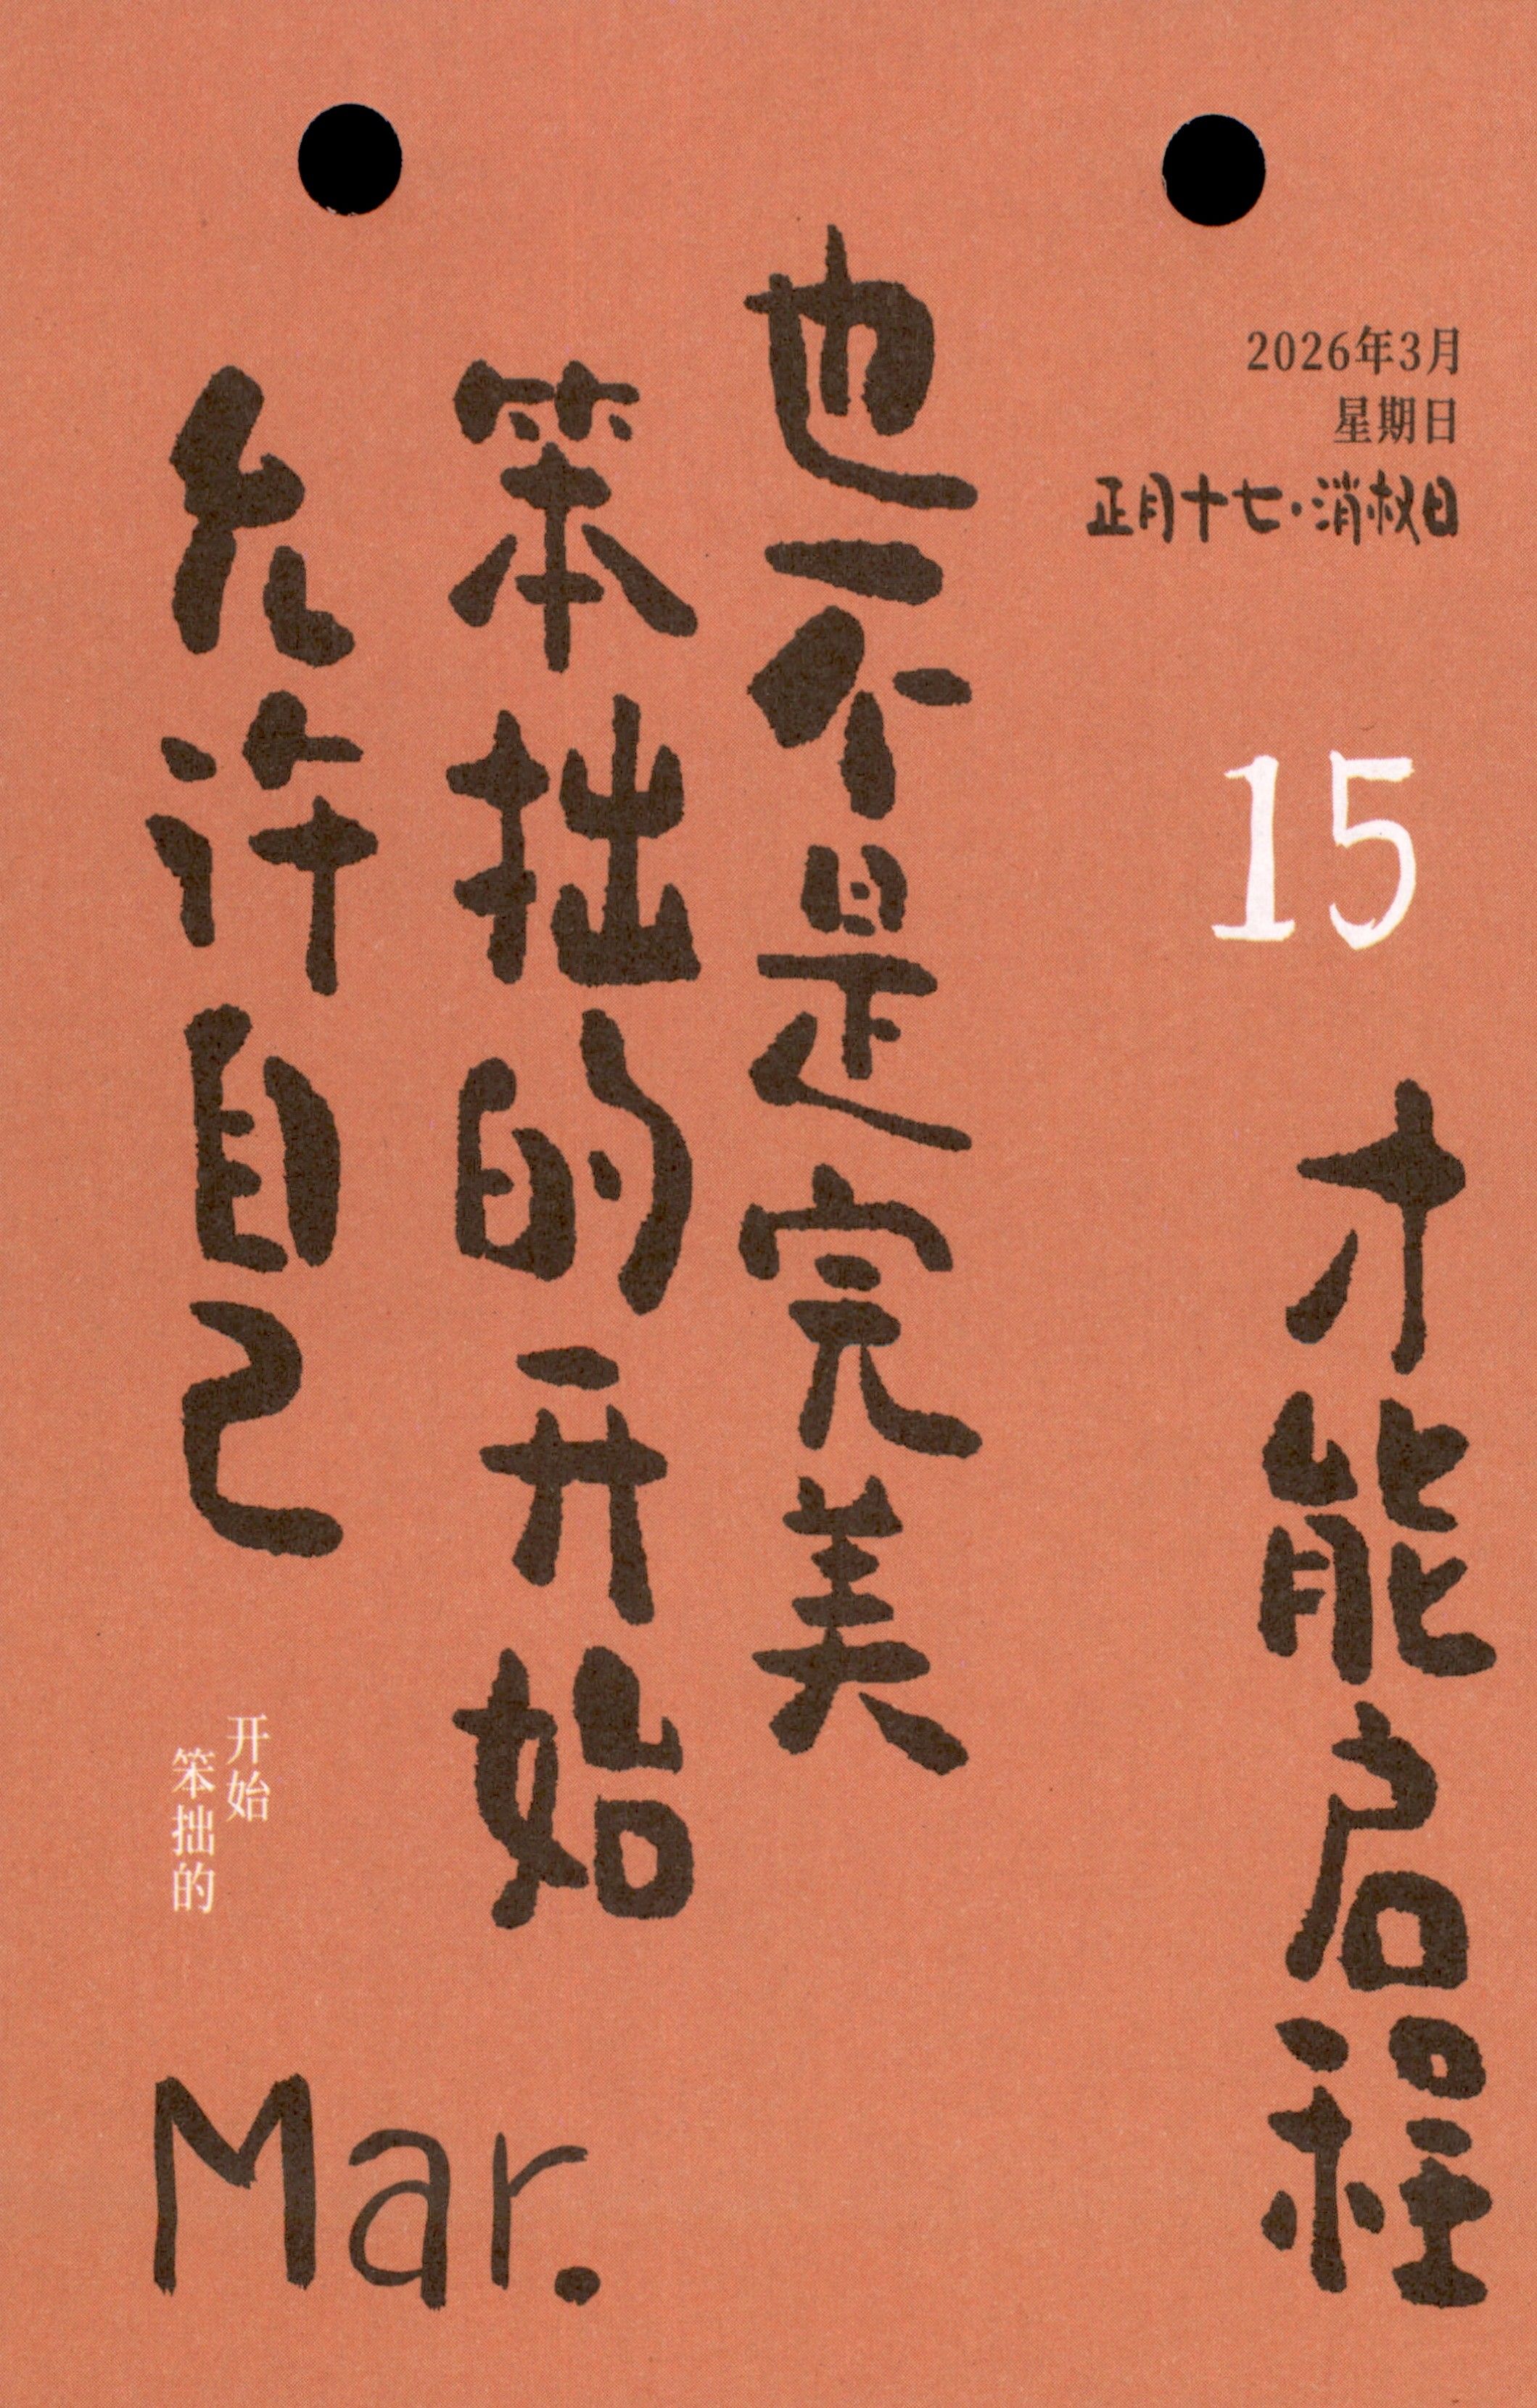 2026年3月
星期日
正月十七·消权日
15
允许自己
笨拙的开始
也不是完美
才能启程
笨拙的
开始
Mar.